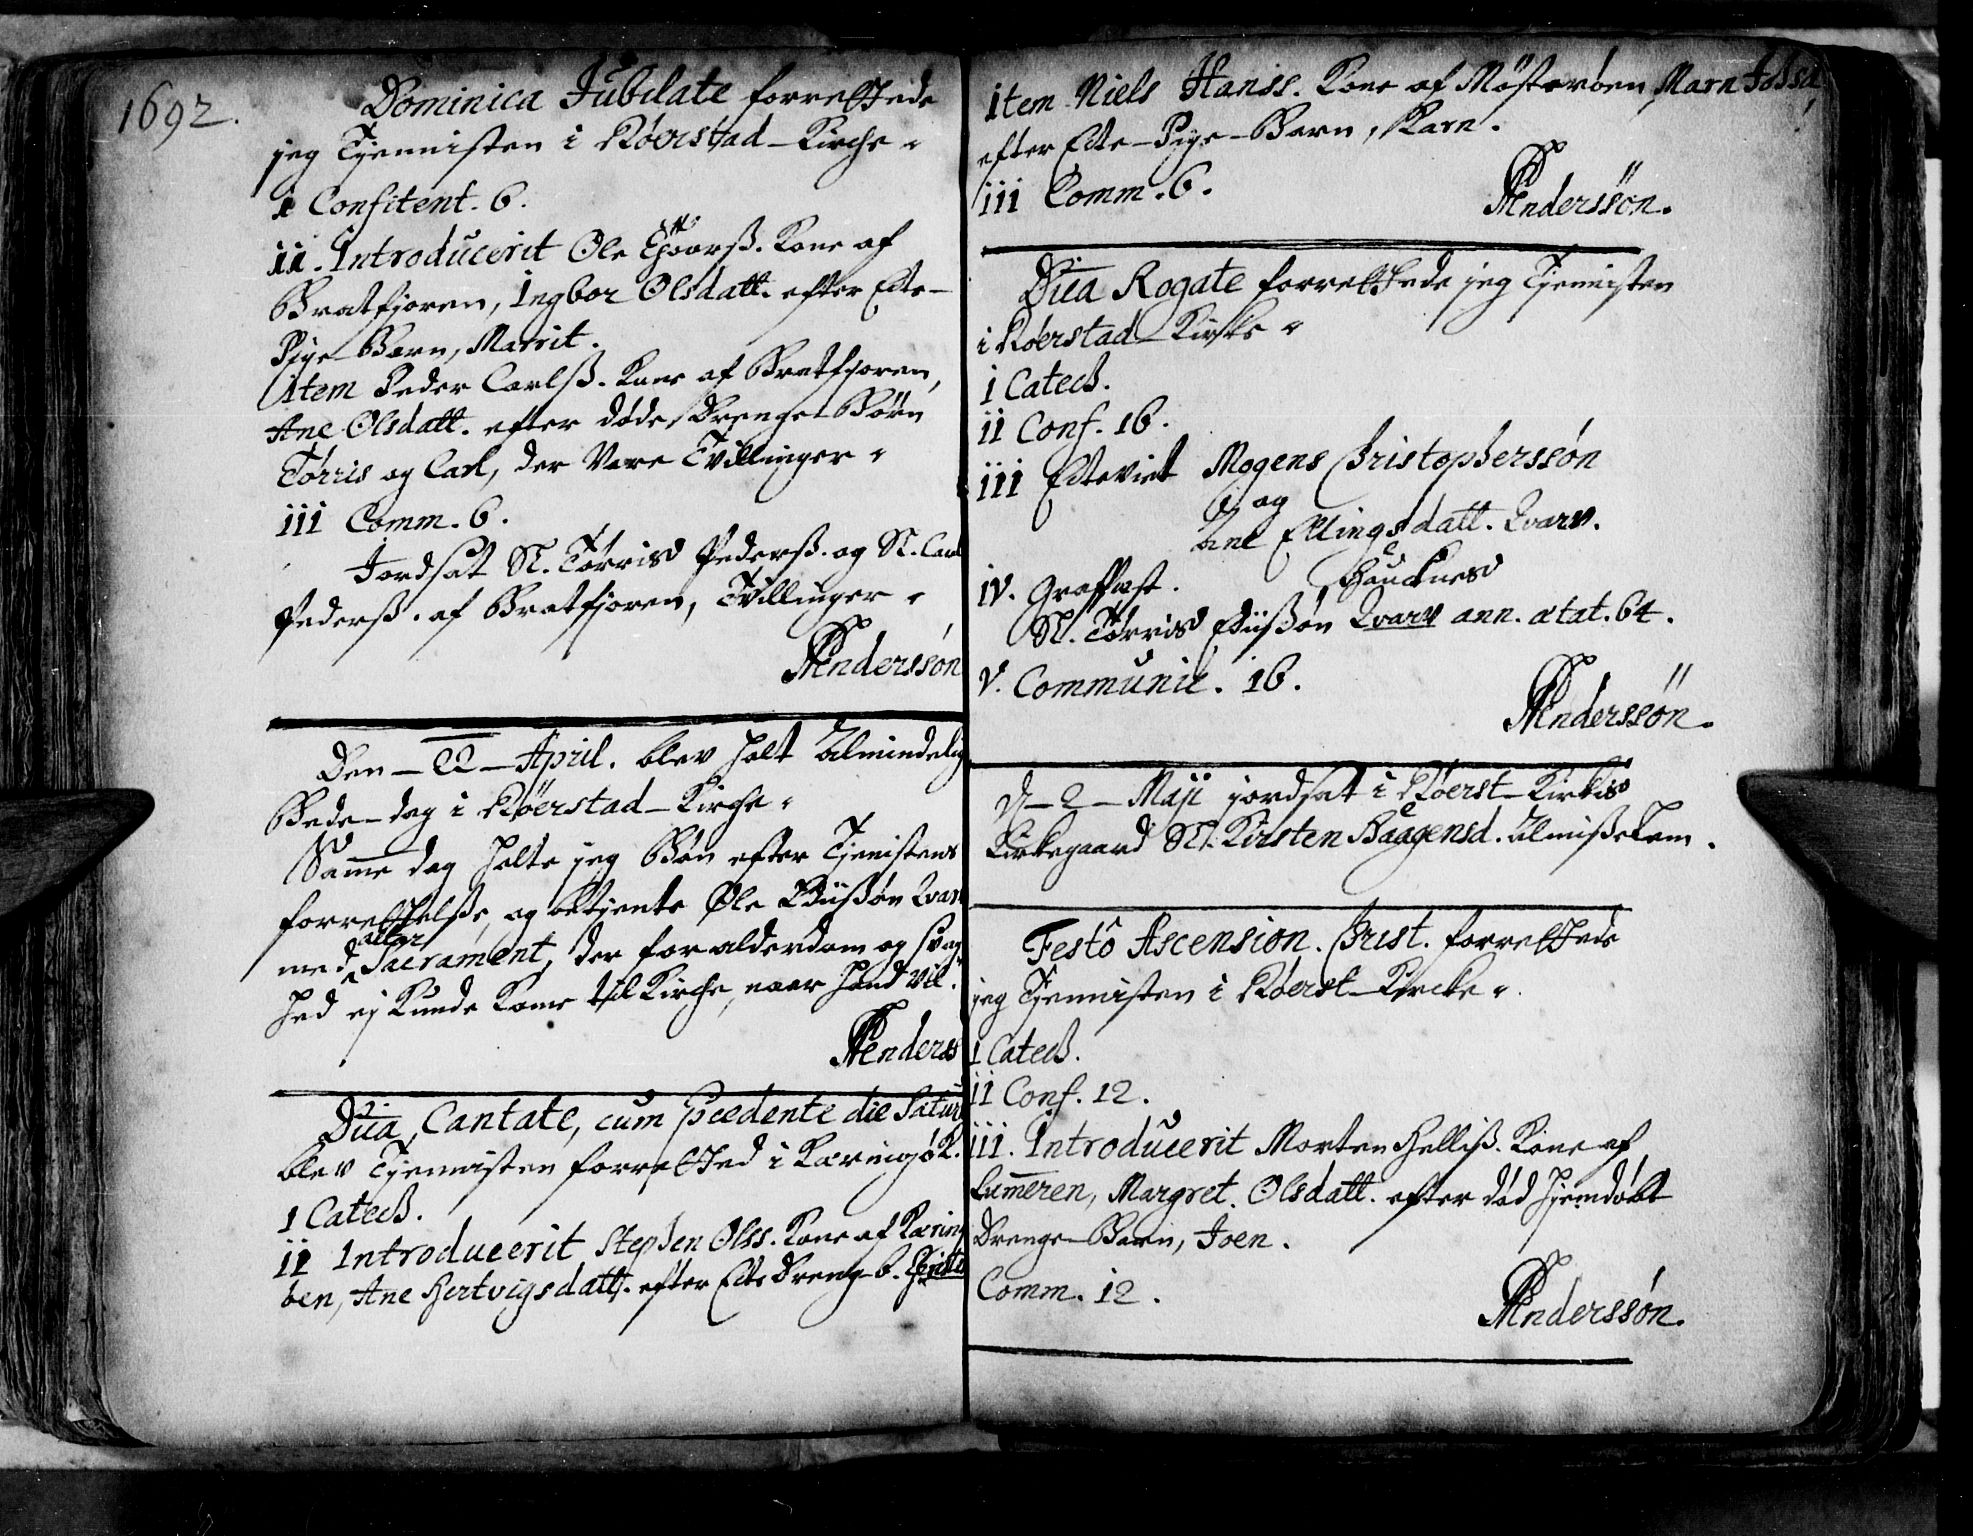 1692.
Dominica Jubilate forrettede
jeg Tjennisten i Röerstad-Kirche.
i Confitent. 6.
ii. Introducerit Ole Kone af
Bratfjoren, Ingbor Olsdatt. efter Ecte-
Pige-Barn, Marrit.
Item Peder Carlsß. Kone af Bratfjoren,
Ane Olsdatt. efter døde Drenge-Börn
Törris og Carl, der Vare Tvillinger.
iii Comm. 6.
Jordsat Sl. Torris Pedersß. og Sl. Carl
Pedersß. af Bratfjoren, Tvillinger.
Anderssón
Den - 22 - April. blev holt Almindelig
Bede-dag i Röerstad-Kirche.
Samme dag holte jeg Bön efter Tjenistens
forrettelsse, og betjente Ole Evar
med altar Sacrament, der for alderdom og svag-
hed ej Kunde Kome til Kirche, naar hand vil.
Anderss
Dñica Cantate, cum pcedente die Satur
blev Tjennisten forretted i Kæringö K.
1 Catech.
ii Introducerit Stephen Olss. Kone af Kæring
öen, Ane Hertvigsdatt. efter Ecte Dreng-b.
item Niels Hanss. Kone af Mösteröen, Marn
efter Ecte-Pige-Barn, Karn.
iii Comm. 6.
Anderssön.
Dñica Rogate forrettede jeg Tjennisten
i Röerstad Kirke.
i Catech.
ii Conf. 16.
iii Ecteviet Mogens Christopherssön
og
Ane Ellingsdatt. Evarv.
iv. Graffæst. Haucknes
Sl. Törris Evarv ann. ætat. 64.
V. Communic. 16.
Anderssön.
D - 2 - Maji jordsat i Röerst-Kirkis
Kirkegaard Sl. Kirsten Haagensd. Almißelem.
Festô Ascension. Christ. forrettede
jeg Tjennisten i Röerst-Kircke.
i Catech.
ii Conf. 12.
iii. Introducerit Morten Helliß. Kone af
Lum̄eren, Margret Olsdatt. efter död hjemdöbt
Drenge-Barn, Joen.
Comm. 12.
Anderssón.